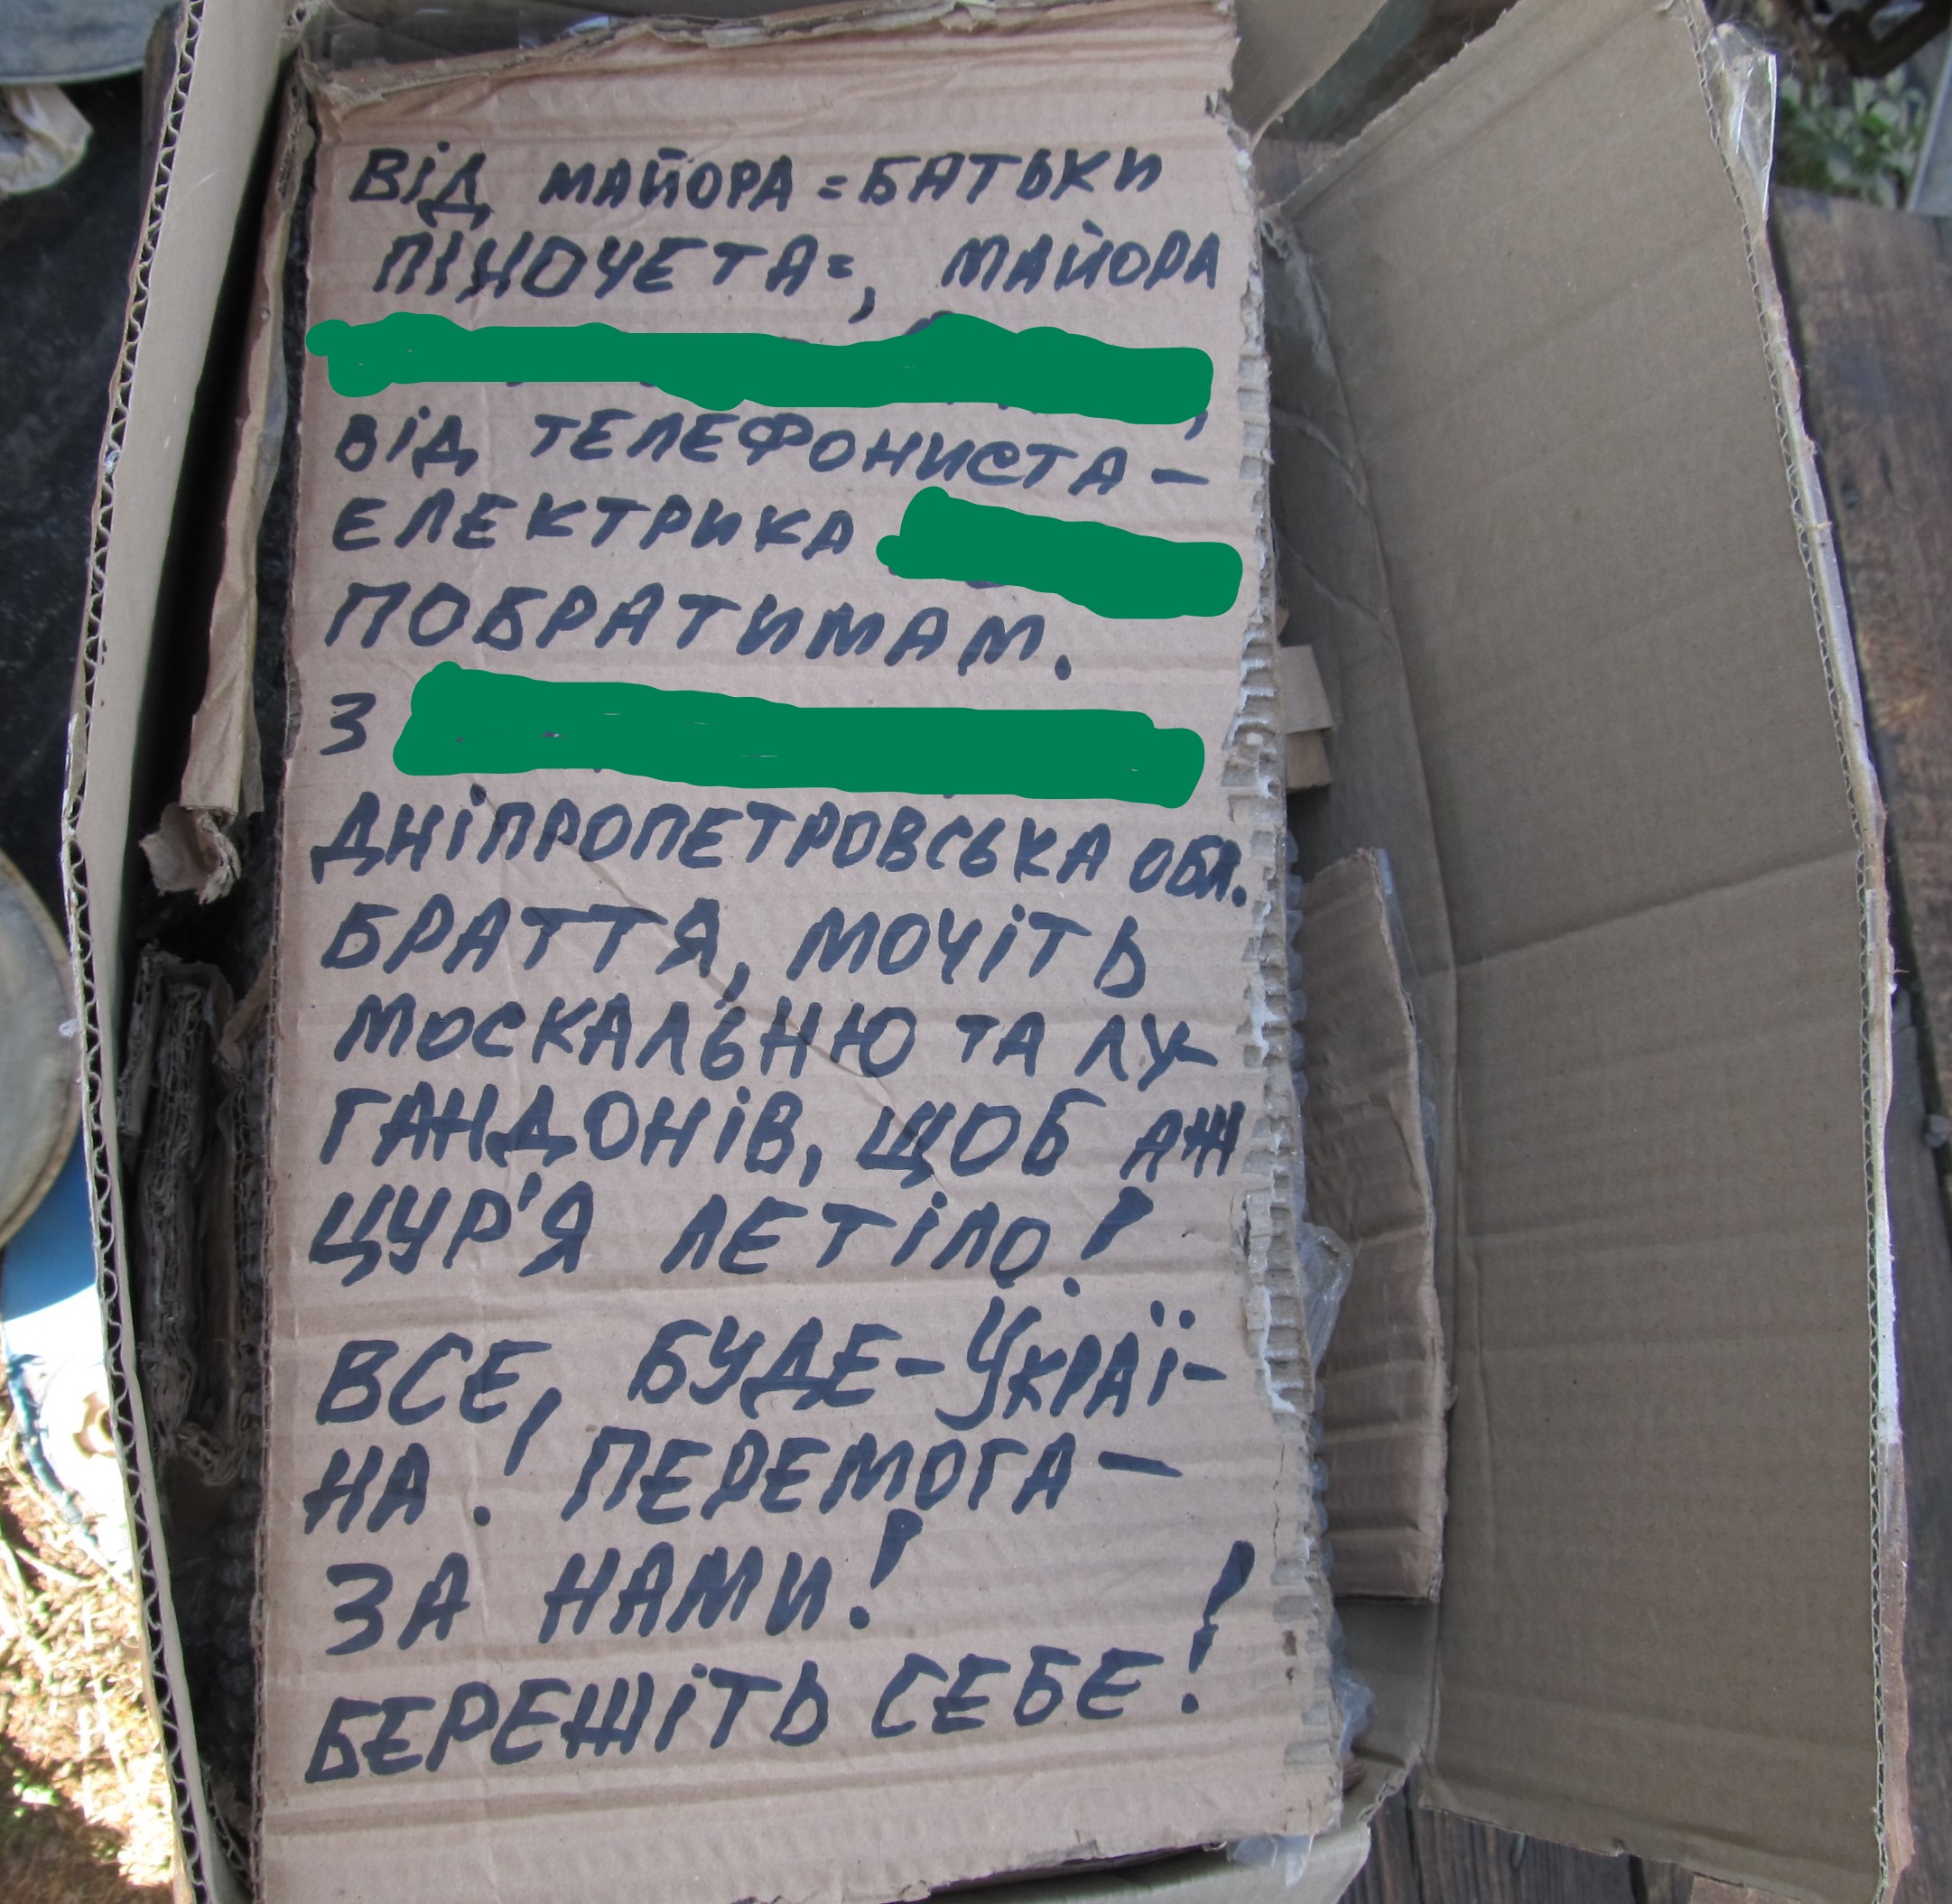 ВІД МАЙОРА = БАТЬКИ
ПІНОЧЕТА =, МАЙОРА
,
ВІД ТЕЛЕФОНИСТА -
ЕЛЕКТРИКА
ПОБРАТИМАМ.
З
ДНІПРОПЕТРОВСЬКА ОБЛ.
БРАТТЯ, МОЧІТЬ
МОСКАЛЬНЮ ТА ЛУ-
ГАНДОНІВ, ЩОБ АЖ
ЦУР'Я ЛЕТІЛО!
ВСЕ, БУДЕ - УКРАЇ-
НА! ПЕРЕМОГА -
ЗА НАМИ!
БЕРЕЖІТЬ СЕБЕ!!